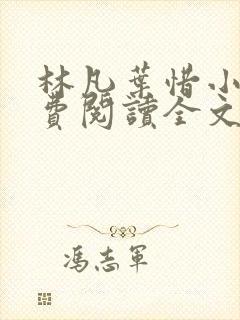 林凡葉惜小
費閱讀全文
馮志軍